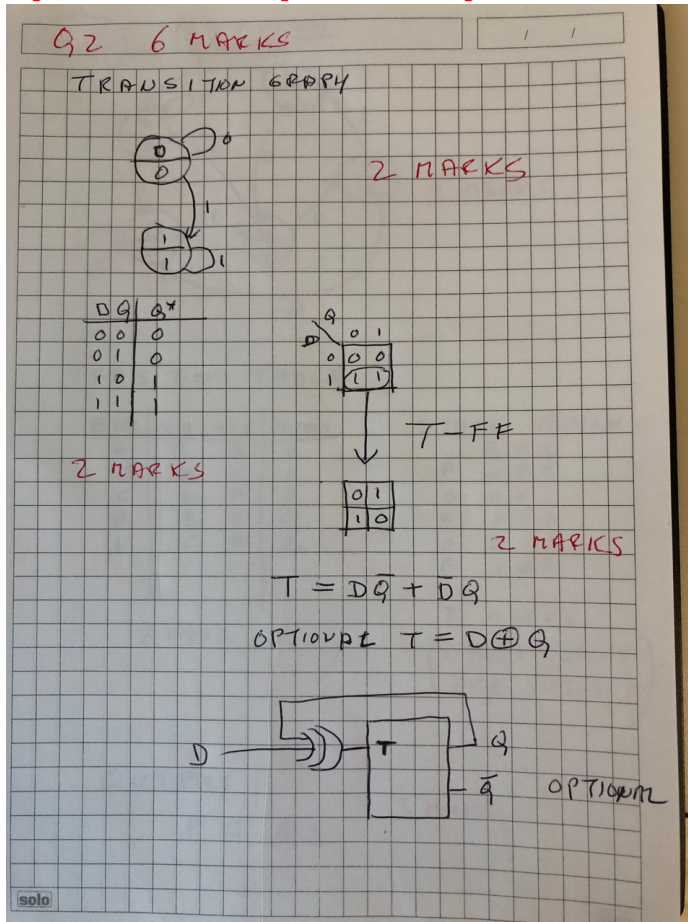 Q2 6 MARKS
/ /
TRANSITION GRAPH
0
0
0
2 MARKS
1
1
1
1
D Q Q*
0 0 0
0 1 0
1 0 1
1 1 1
Q
D 0 1
0 0 0
1 1 1
T-FF
2 MARKS
0 1
1 0
2 MARKS
T = DQ̅ + D̅Q
OPTIONAL T = D ⊕ Q
D T Q
Q̅ OPTIONAL
solo